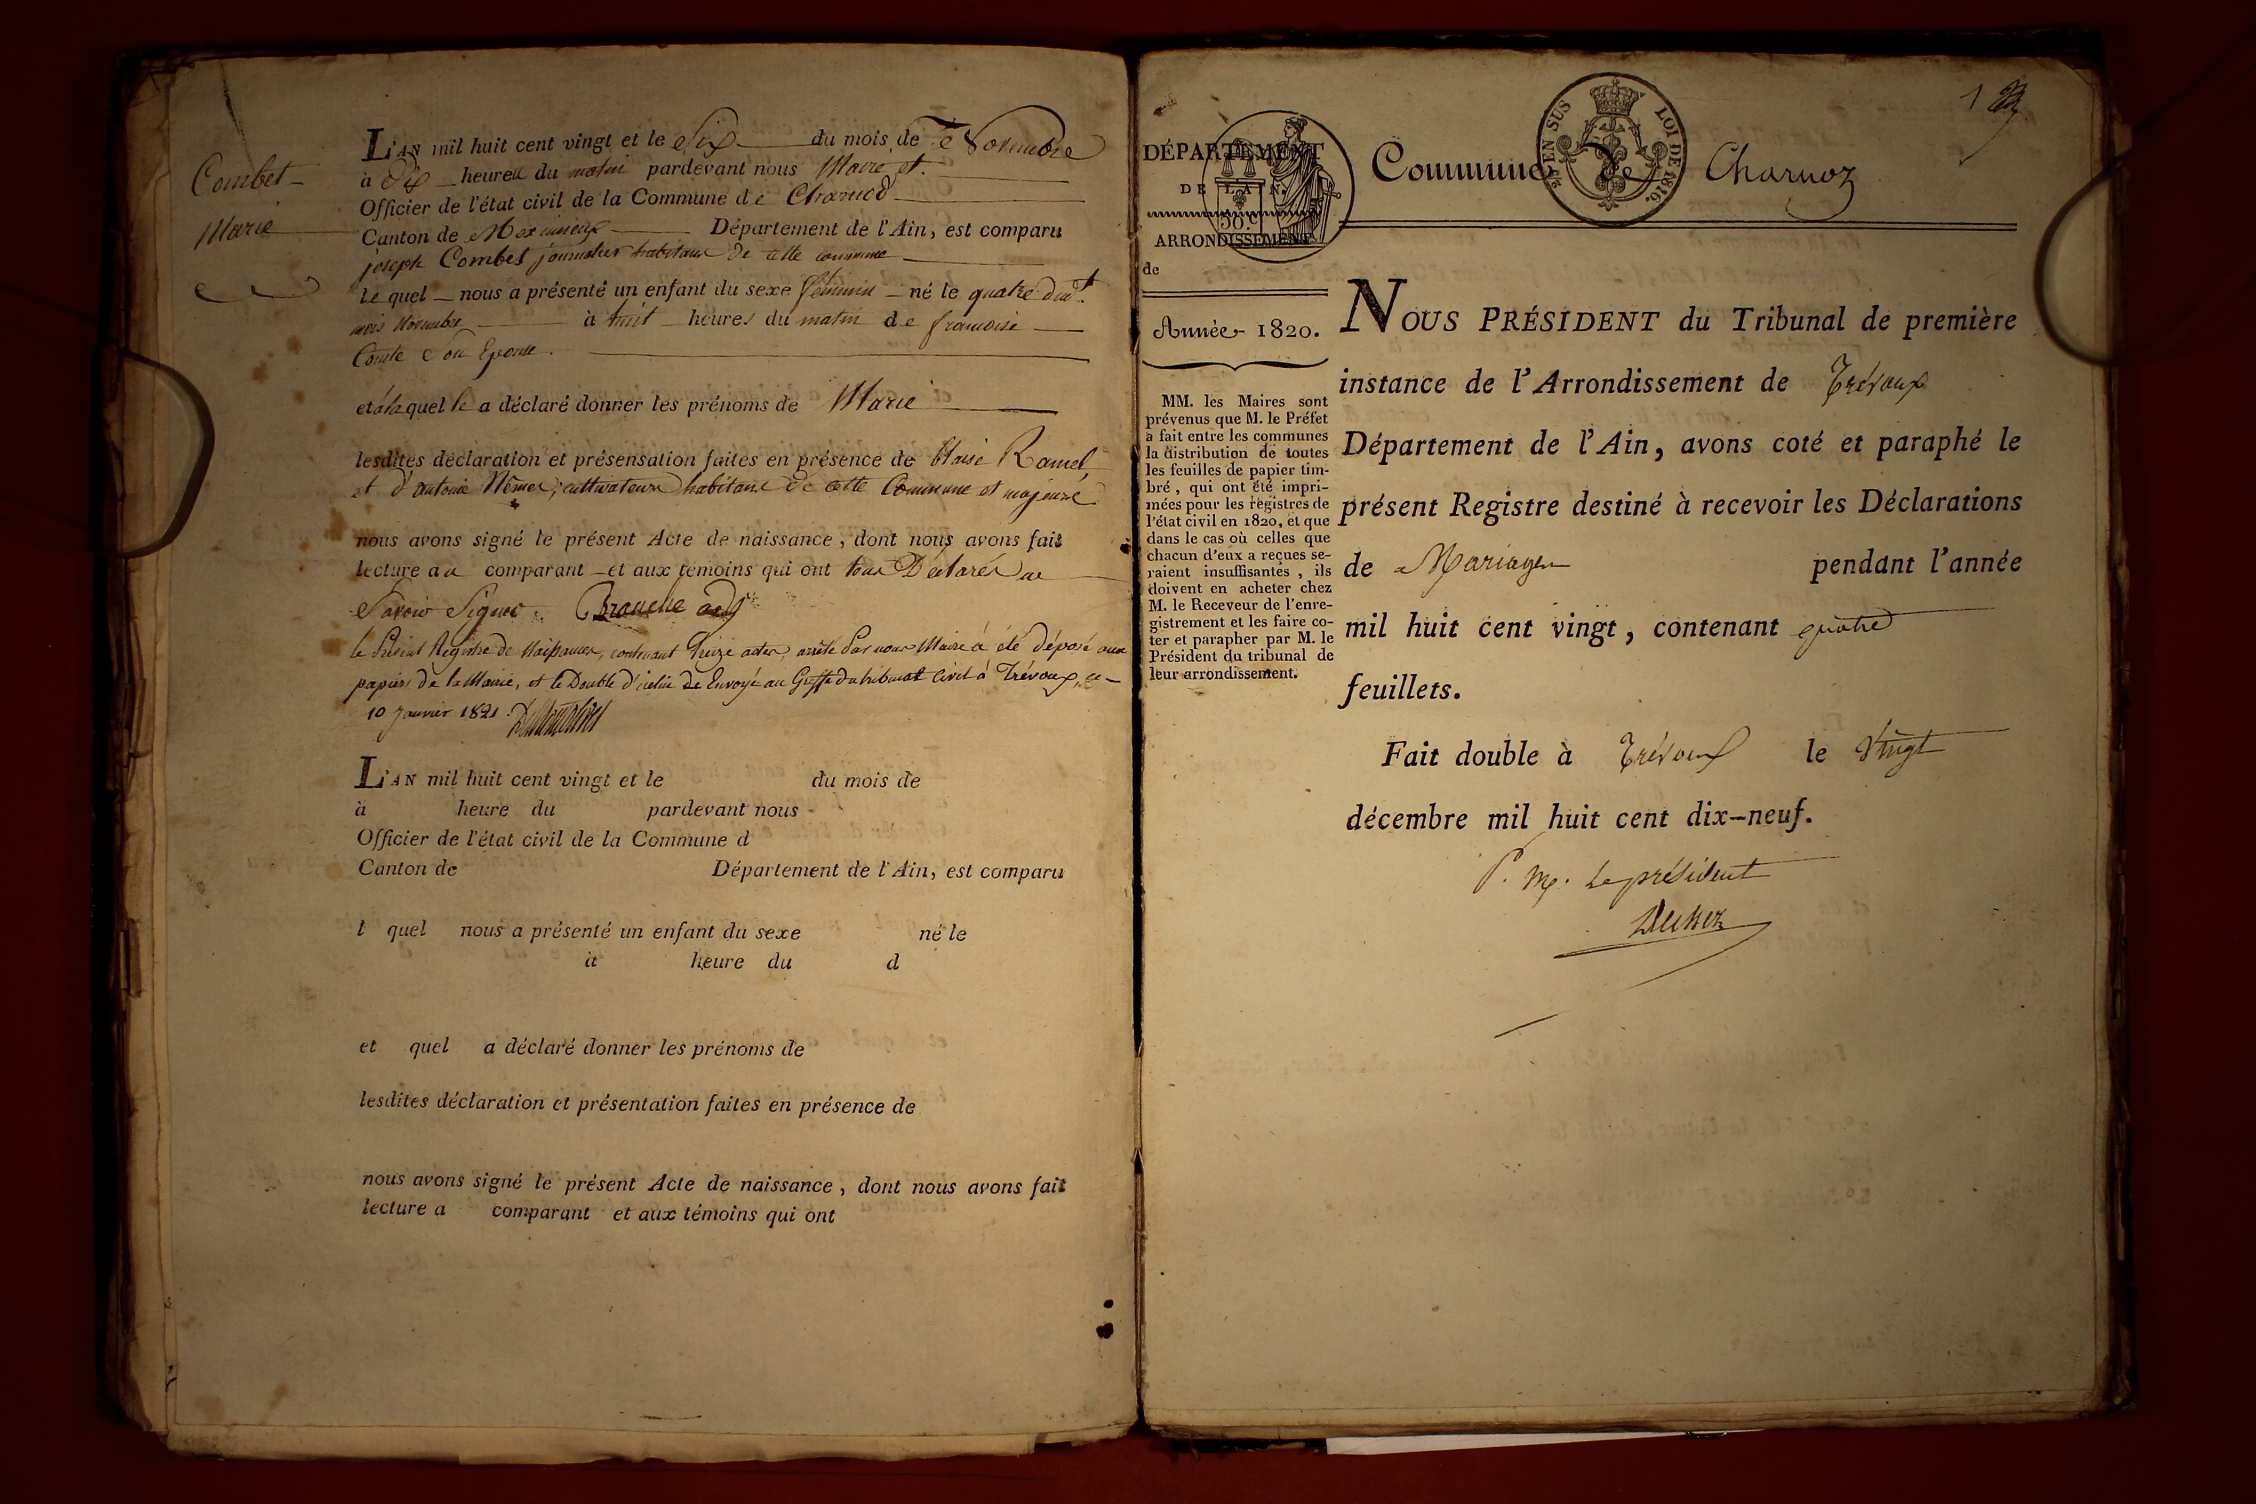 Combet
Marie
L'AN mil huit cent vingt et le Six du mois de Novembre
à Dix heures du matin pardevant nous Maire et
Officier de l'état civil de la Commune de Charnoz
Canton de Meximieux Département de l'Ain, est comparu
joseph Combet journalier habitant de cette commune
le quel nous a présenté un enfant du sexe féminin né le quatre dudt.
mois Novembre à huit heures du matin de francoise
Comte Son Epouse.
et a la quel le a déclaré donner les prénoms de Marie
lesdites déclaration et présensation faites en présence de blaise Ramel
et d'antoine cultivateurs habitans de cette Commune et majeurs
nous avons signé le présent Acte de naissance, dont nous avons fait
lecture au comparant et aux témoins qui ont tous Déclarés ne
Savoir Signer.
le Présent Registre de Naissances, contenant treize actes, arrêté Par nous Maire à été déposé aux
papiers de la Mairie, et le Double d'icelui de Envoyé au Greffe du tribunal Civil à Trévoux, ce
10 Janvier 1821.
L'AN mil huit cent vingt et le du mois de
à heure du pardevant nous
Officier de l'état civil de la Commune d
Canton de Département de l'Ain, est comparu
l quel nous a présenté un enfant du sexe né le
à heure du d
et quel a déclaré donner les prénoms de
lesdites déclaration et présentation faites en présence de
nous avons signé le présent Acte de naissance, dont nous avons fait
lecture a comparant et aux témoins qui ont
1
EN SUS LOI DE 1816.
DÉPARTEMENT
DE L'AIN.
50 c
ARRONDISSEMENT
de
Année 1820.
MM. les Maires sont
prévenus que M. le Préfet
a fait entre les communes
la distribution de toutes
les feuilles de papier tim-
bré, qui ont été impri-
mées pour les registres de
l'état civil en 1820, et que
dans le cas où celles que
chacun d'eux a reçues se-
raient insuffisantes, ils
doivent en acheter chez
M. le Receveur de l'enre-
gistrement et les faire co-
ter et parapher par M. le
Président du tribunal de
leur arrondissement.
Commune de Charnoz
NOUS PRÉSIDENT du Tribunal de première
instance de l'Arrondissement de Trévoux
Département de l'Ain, avons coté et paraphé le
présent Registre destiné à recevoir les Déclarations
de Mariages pendant l'année
mil huit cent vingt, contenant quatre
feuillets.
Fait double à Trévoux le Vingt
décembre mil huit cent dix-neuf.
P. Mr. Le président